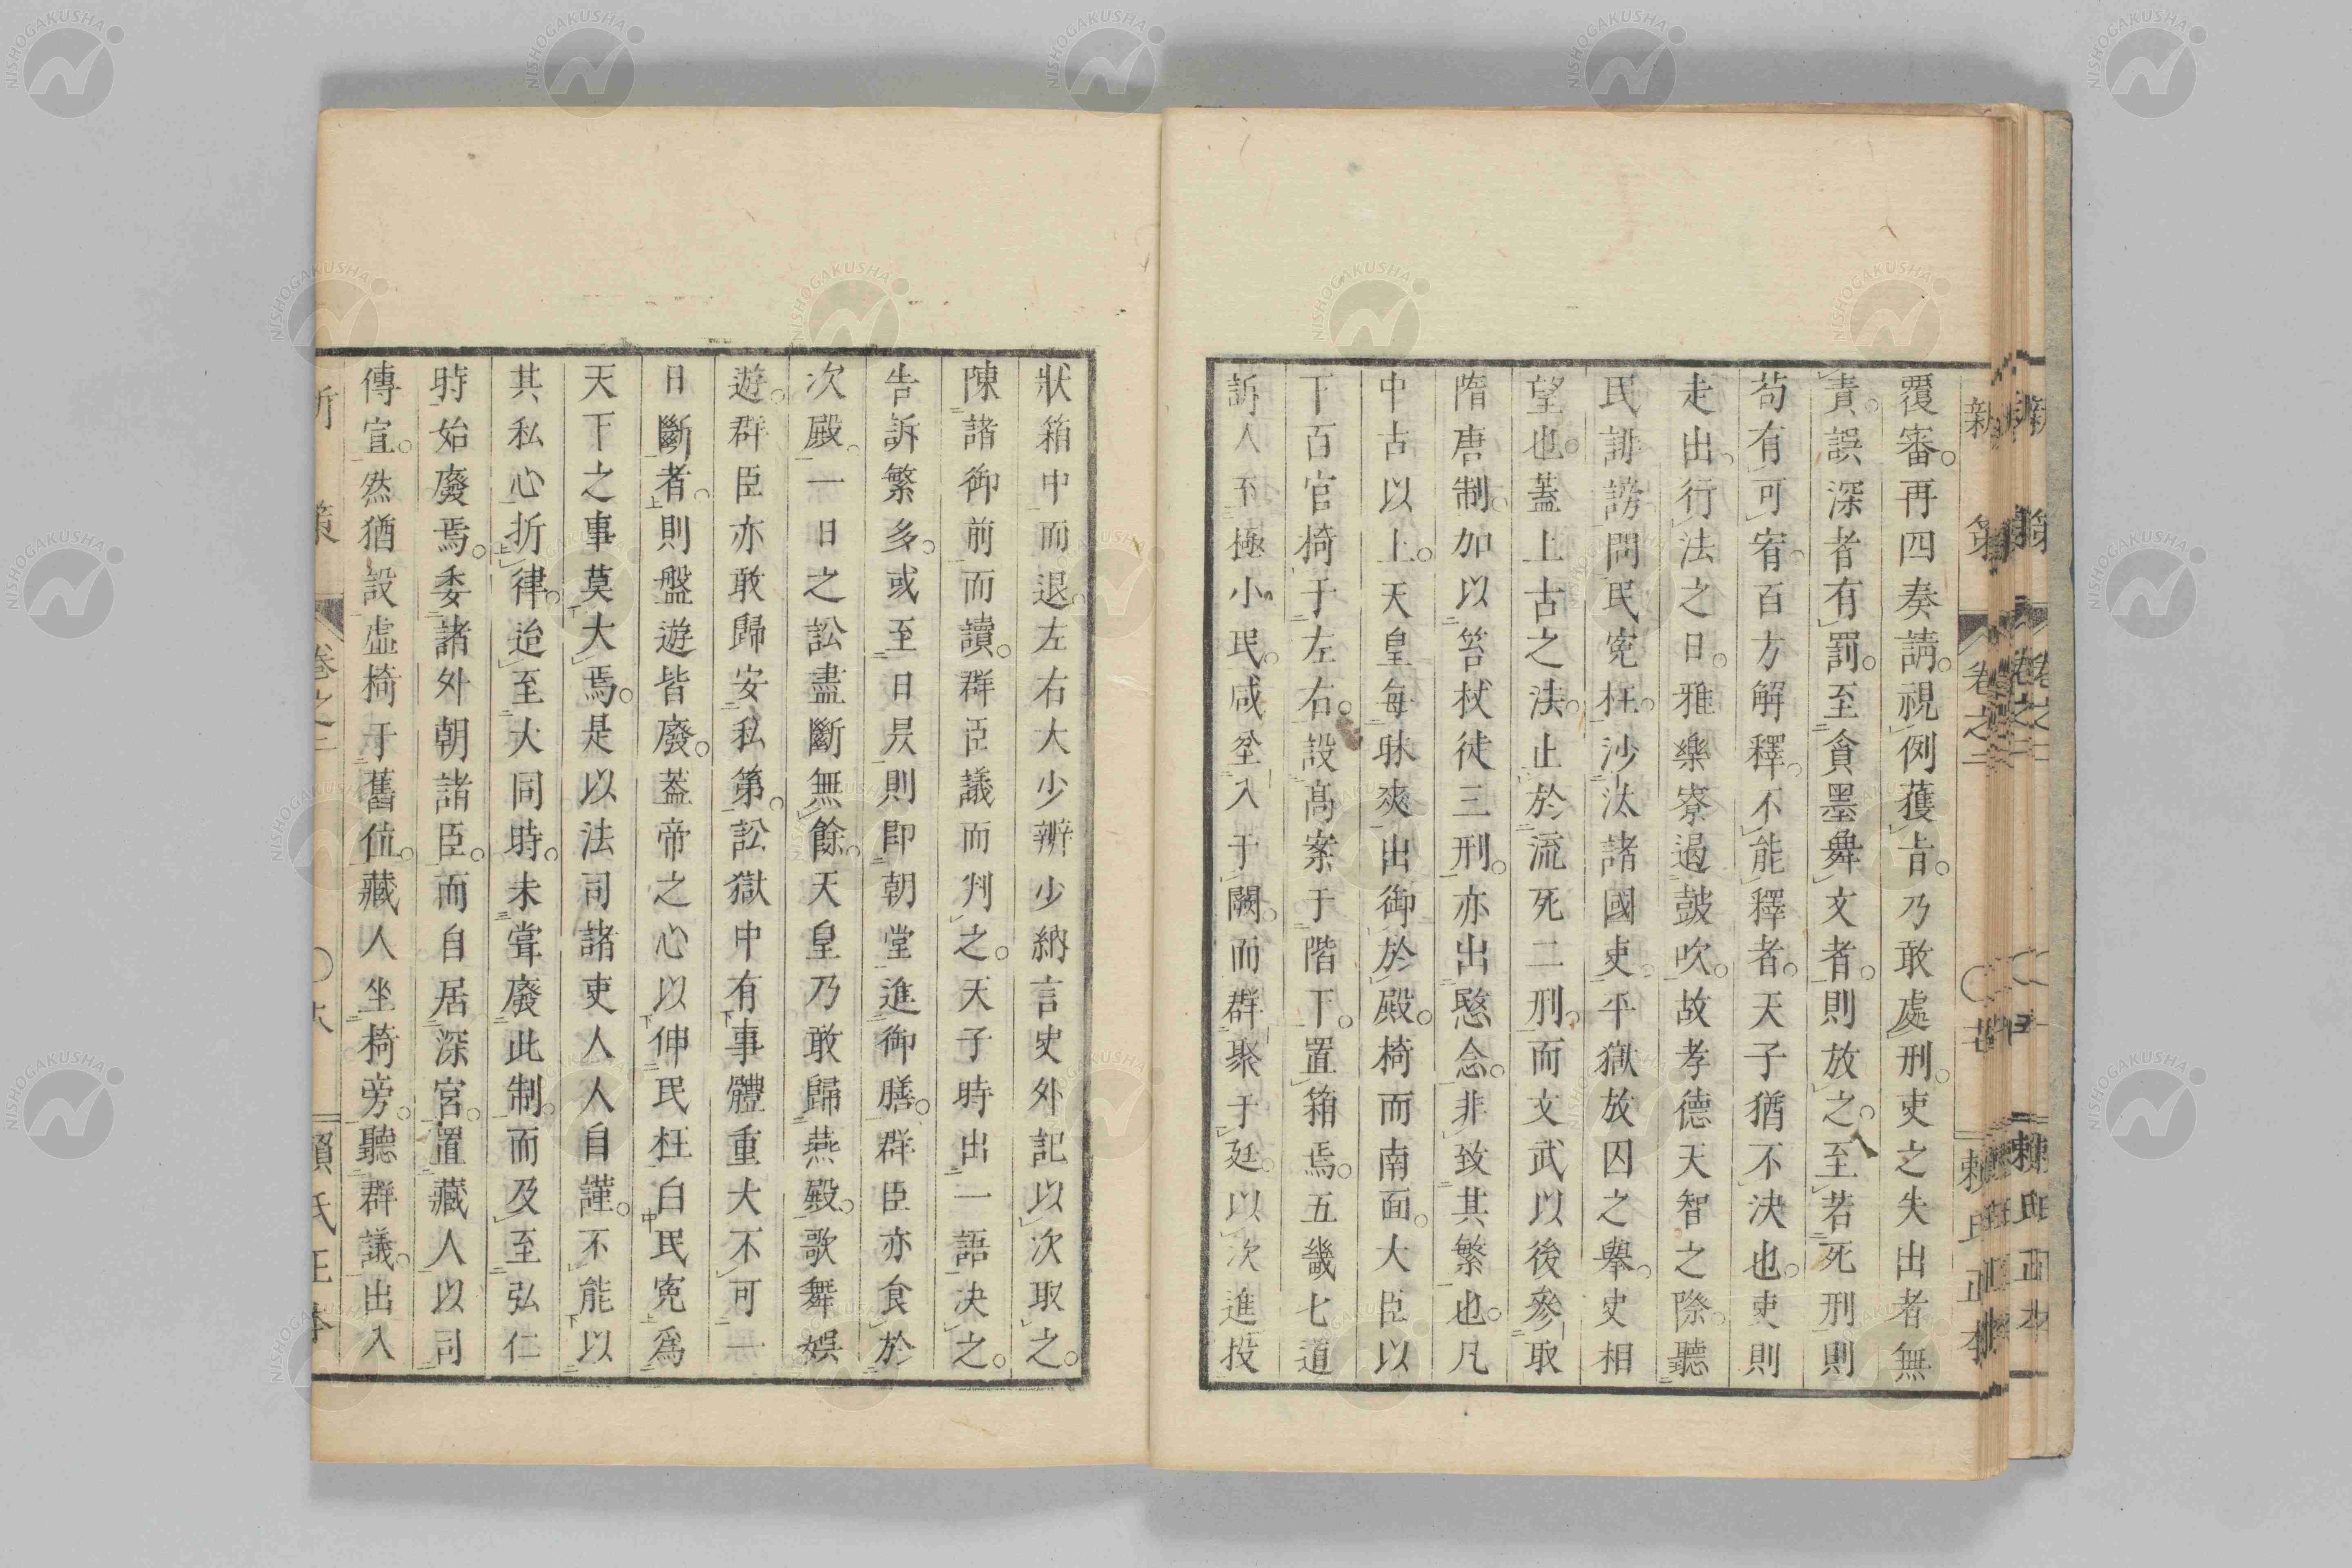 覆審。再四奏請。視例獲旨。乃敢處刑。吏之失出者無
責。誤深者有罰。至貪墨舞文者。則放之。至若死刑則
苟有可宥。百方解釋。不能釋者。天子猶不決也。吏則
走出。行法之日。雅樂寮遏鼓吹。故孝德天智之際。聽
民誹謗。問民寃枉。沙汰諸國吏。平獄放囚之舉。史相
望也。蓋上古之法。止於流死二刑。而文武以後參取
隋唐制。加以笞杖徒三刑。亦出愍念。非致其繁也。凡
中古以上。天皇每昧爽出御於殿。椅而南面。大臣以
下百官椅于左右。設高案于階下。置箱焉。五畿七道
訴人不極小民。咸坌入于闕。而群聚于廷。以次進投
狀箱中而退。左右大少辨少納言史外記以次取之。
陳諸御前而讀。群臣議而判之。天子時出一語決之。
告訴繁多。或至日昃則即朝堂進御膳。群臣亦食於
次殿。一日之訟盡斷無餘。天皇乃敢歸燕殿。歌舞娛
遊。群臣亦敢歸安私第。訟獄中有事體重大不可一
日斷者。則盤遊皆廢。蓋帝之心以伸民枉白民寃爲
天下之事莫大焉。是以法司諸吏人人自謹。不能以
其私心折律。迨至大同時。未嘗廢此制。而及至弘仁
時始廢焉。委諸外朝諸臣。而自居深宮。置藏人以司
傳宣。然猶設虛椅于舊位。藏人坐椅旁。聽群議。出入
新策 卷之三 賴氏正本
新策 卷之三 賴氏正本
NISHOGAKUSHA